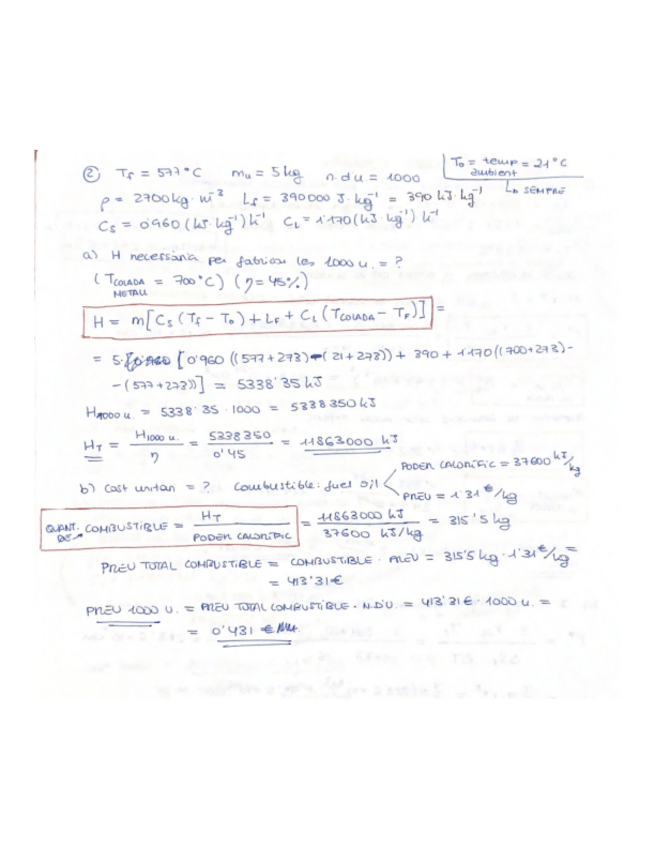 ② Tf = 577°C mu = 5 kg n.d u = 1000
T₀ = temp = 21°C
ambient
↳ SEMPRE
ρ = 2700 kg · m⁻³ Lf = 390000 J·kg⁻¹ = 390 kJ·kg⁻¹
Cs = 0'960 (kJ·kg⁻¹) k⁻¹ CL = 1'170 (kJ·kg⁻¹) k⁻¹
a) H necessària per fabricar les 1000 u. = ?
(TCOLADA = 700°C) (η = 45%)
METALL
H = m[Cs (Tf - T₀) + LF + CL (TCOLADA - TF)] =
= 5· [0'960 ((577+273) - (21+273)) + 390 + 1'170((700+273) -
- (577+273))] = 5338'35 kJ
H1000 u. = 5338'35 · 1000 = 5338350 kJ
HT = H1000 u. / η = 5338350 / 0'45 = 11863000 kJ
b) Cost unitari = ? Combustible: fuel oil
PODER CALORÍFIC = 37600 kJ/kg
PREU = 1'31 €/kg
QUANT. DE COMBUSTIBLE = HT / PODER CALORÍFIC = 11863000 kJ / 37600 kJ/kg = 315'5 kg
PREU TOTAL COMBUSTIBLE = COMBUSTIBLE · PREU = 315'5 kg · 1'31 €/kg =
= 413'31 €
PREU 1000 U. = PREU TOTAL COMBUSTIBLE · N.D'U. = 413'31 € · 1000 u. =
= 0'431 €